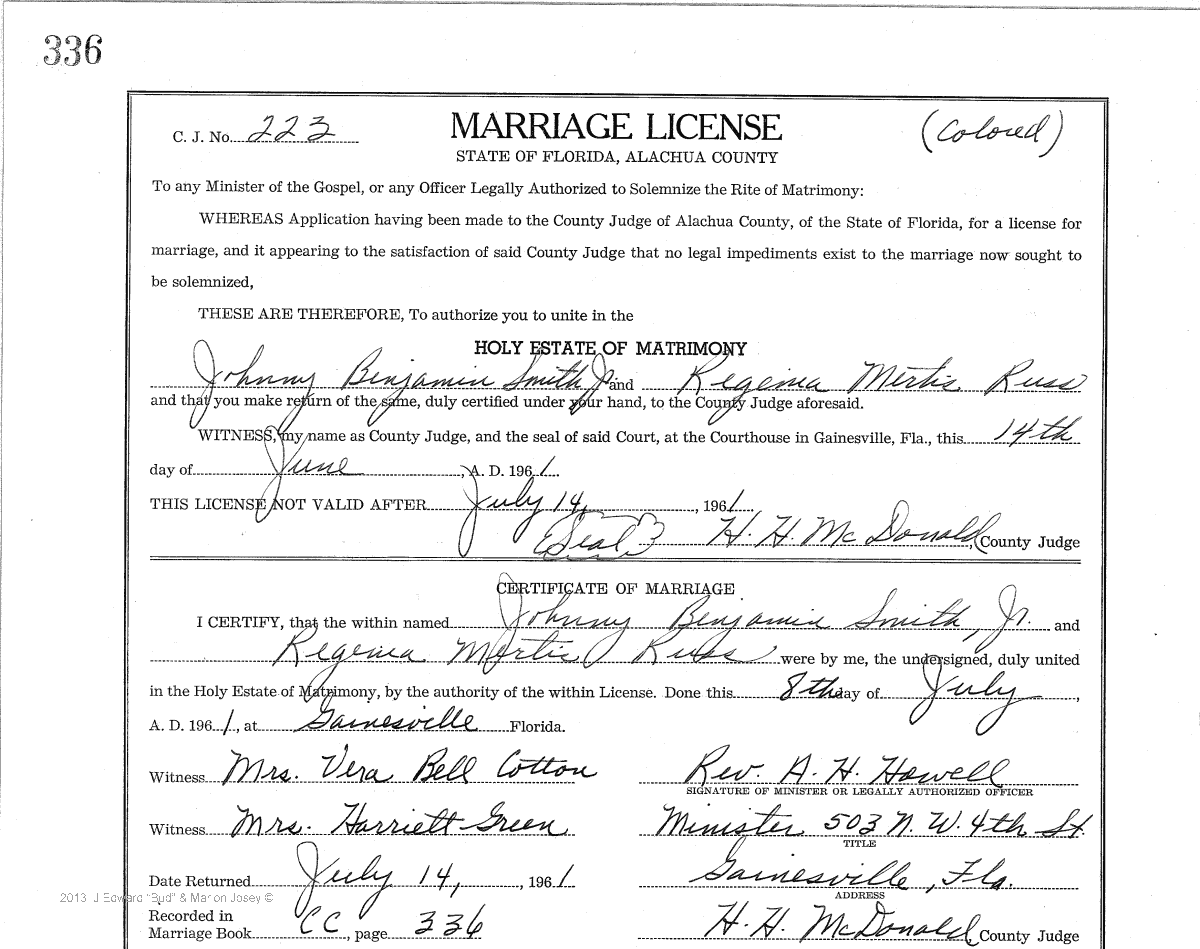 336
C. J. No. 223
MARRIAGE LICENSE
(Colored)
STATE OF FLORIDA, ALACHUA COUNTY
To any Minister of the Gospel, or any Officer Legally Authorized to Solemnize the Rite of Matrimony:
WHEREAS Application having been made to the County Judge of Alachua County, of the State of Florida, for a license for
marriage, and it appearing to the satisfaction of said County Judge that no legal impediments exist to the marriage now sought to
be solemnized,
THESE ARE THEREFORE, To authorize you to unite in the
HOLY ESTATE OF MATRIMONY
Johnny Benjamin Smith Jr and Regenia Mertis Russ
and that you make return of the same, duly certified under your hand, to the County Judge aforesaid.
WITNESS, my name as County Judge, and the seal of said Court, at the Courthouse in Gainesville, Fla., this 14th
day of June, A. D. 1961
THIS LICENSE NOT VALID AFTER July 14, 1961
Seal H. H. McDonald, County Judge
CERTIFICATE OF MARRIAGE
I CERTIFY, that the within named Johnny Benjamin Smith, Jr. and
Regenia Mertis Russ were by me, the undersigned, duly united
in the Holy Estate of Matrimony, by the authority of the within License. Done this 8th day of July,
A. D. 1961, at Gainesville Florida.
Witness Mrs. Vera Bell Cotton Rev. A. H. Howell
SIGNATURE OF MINISTER OR LEGALLY AUTHORIZED OFFICER
Witness Mrs. Harriett Green Minister 503 N. W. 4th St.
TITLE
Date Returned July 14, 1961 Gainesville, Fla.
ADDRESS
2013 J Edward "Bud" & Marion Josey ©
Recorded in
Marriage Book CC, page 336 H. H. McDonald, County Judge